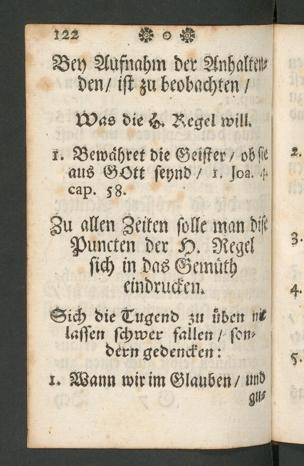 122
Bey Aufnahm der Anhalten-
den / ist zu beobachten /
Was die H. Regel will.
1. Bewähret die Geister / ob sie
aus GOtt seynd / 1. Joa. 4.
cap. 58.
Zu allen Zeiten solle man dise
Puncten der H. Regel
sich in das Gemüth
eindrucken.
Sich die Tugend zu üben nit
lassen schwer fallen / son-
dern gedencken:
1. Wann wir im Glauben / und
gu-
2.
3.
4.
5.